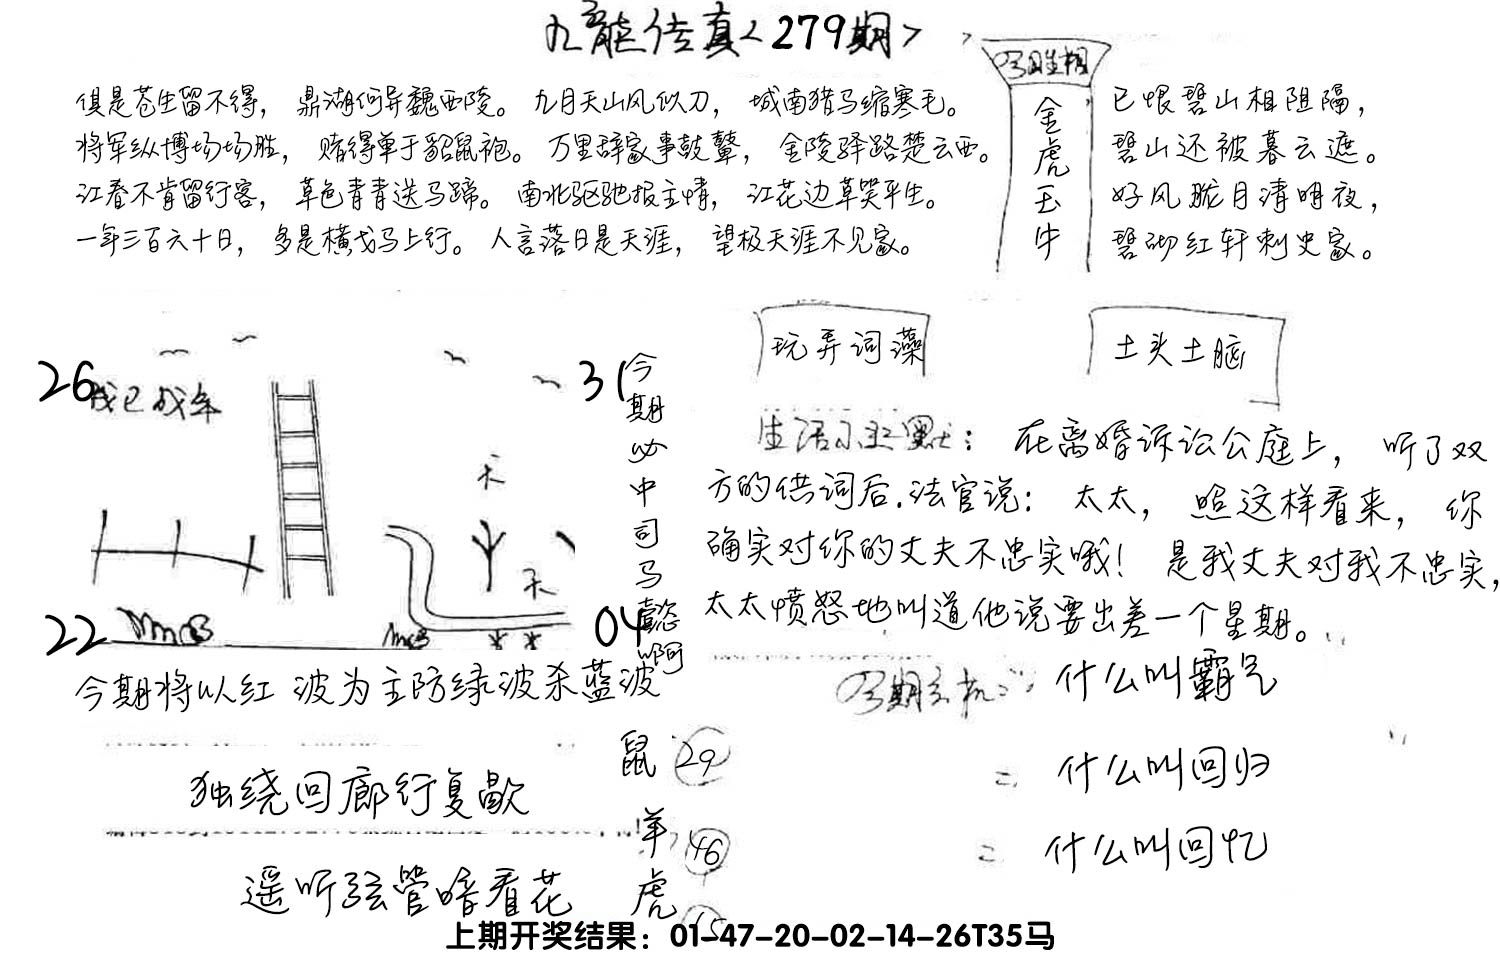 九龙传真<279期>
俱是苍生留不得，鼎湖何异魏西陵。九月天山风似刀，城南猎马缩寒毛。
将军纵博场场胜，赌得单于貂鼠袍。万里辞家事鼓鼙，金陵驿路楚云西。
江春不肯留行客，草色青青送马蹄。南北驱驰报主情，江花边草笑平生。
一年三百六十日，多是横戈马上行。人言落日是天涯，望极天涯不见家。
金虎玉牛
已恨碧山相阻隔，
碧山还被暮云遮。
好风胧月清明夜，
碧砌红轩刺史家。
26
31
22
04
天
天
今期必中司马懿啊
今期将以红 波为主防绿波杀蓝波
玩弄词藻
土头土脑
生活小幽默：在离婚诉讼公庭上，听了双
方的供词后.法官说：太太，照这样看来，你
确实对你的丈夫不忠实哦！是我丈夫对我不忠实，
太太愤怒地叫道他说要出差一个星期。
今期玄机：什么叫霸气
= 什么叫回归
= 什么叫回忆
独绕回廊行复歇
遥听弦管暗看花
鼠 29
羊 46
虎 15
上期开奖结果：01-47-20-02-14-26T35马